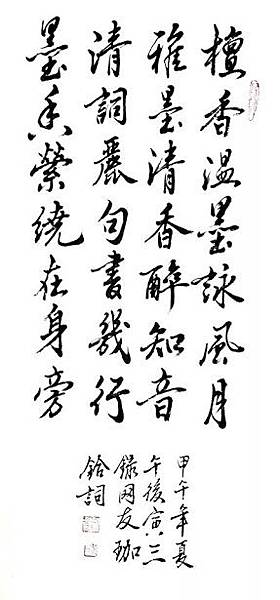 檀香溫墨詠風月
雅墨清香醉知音
清詞麗句書幾行
墨香縈繞在身旁
甲午年夏
午後寅三
錄网友珈
鉿詞